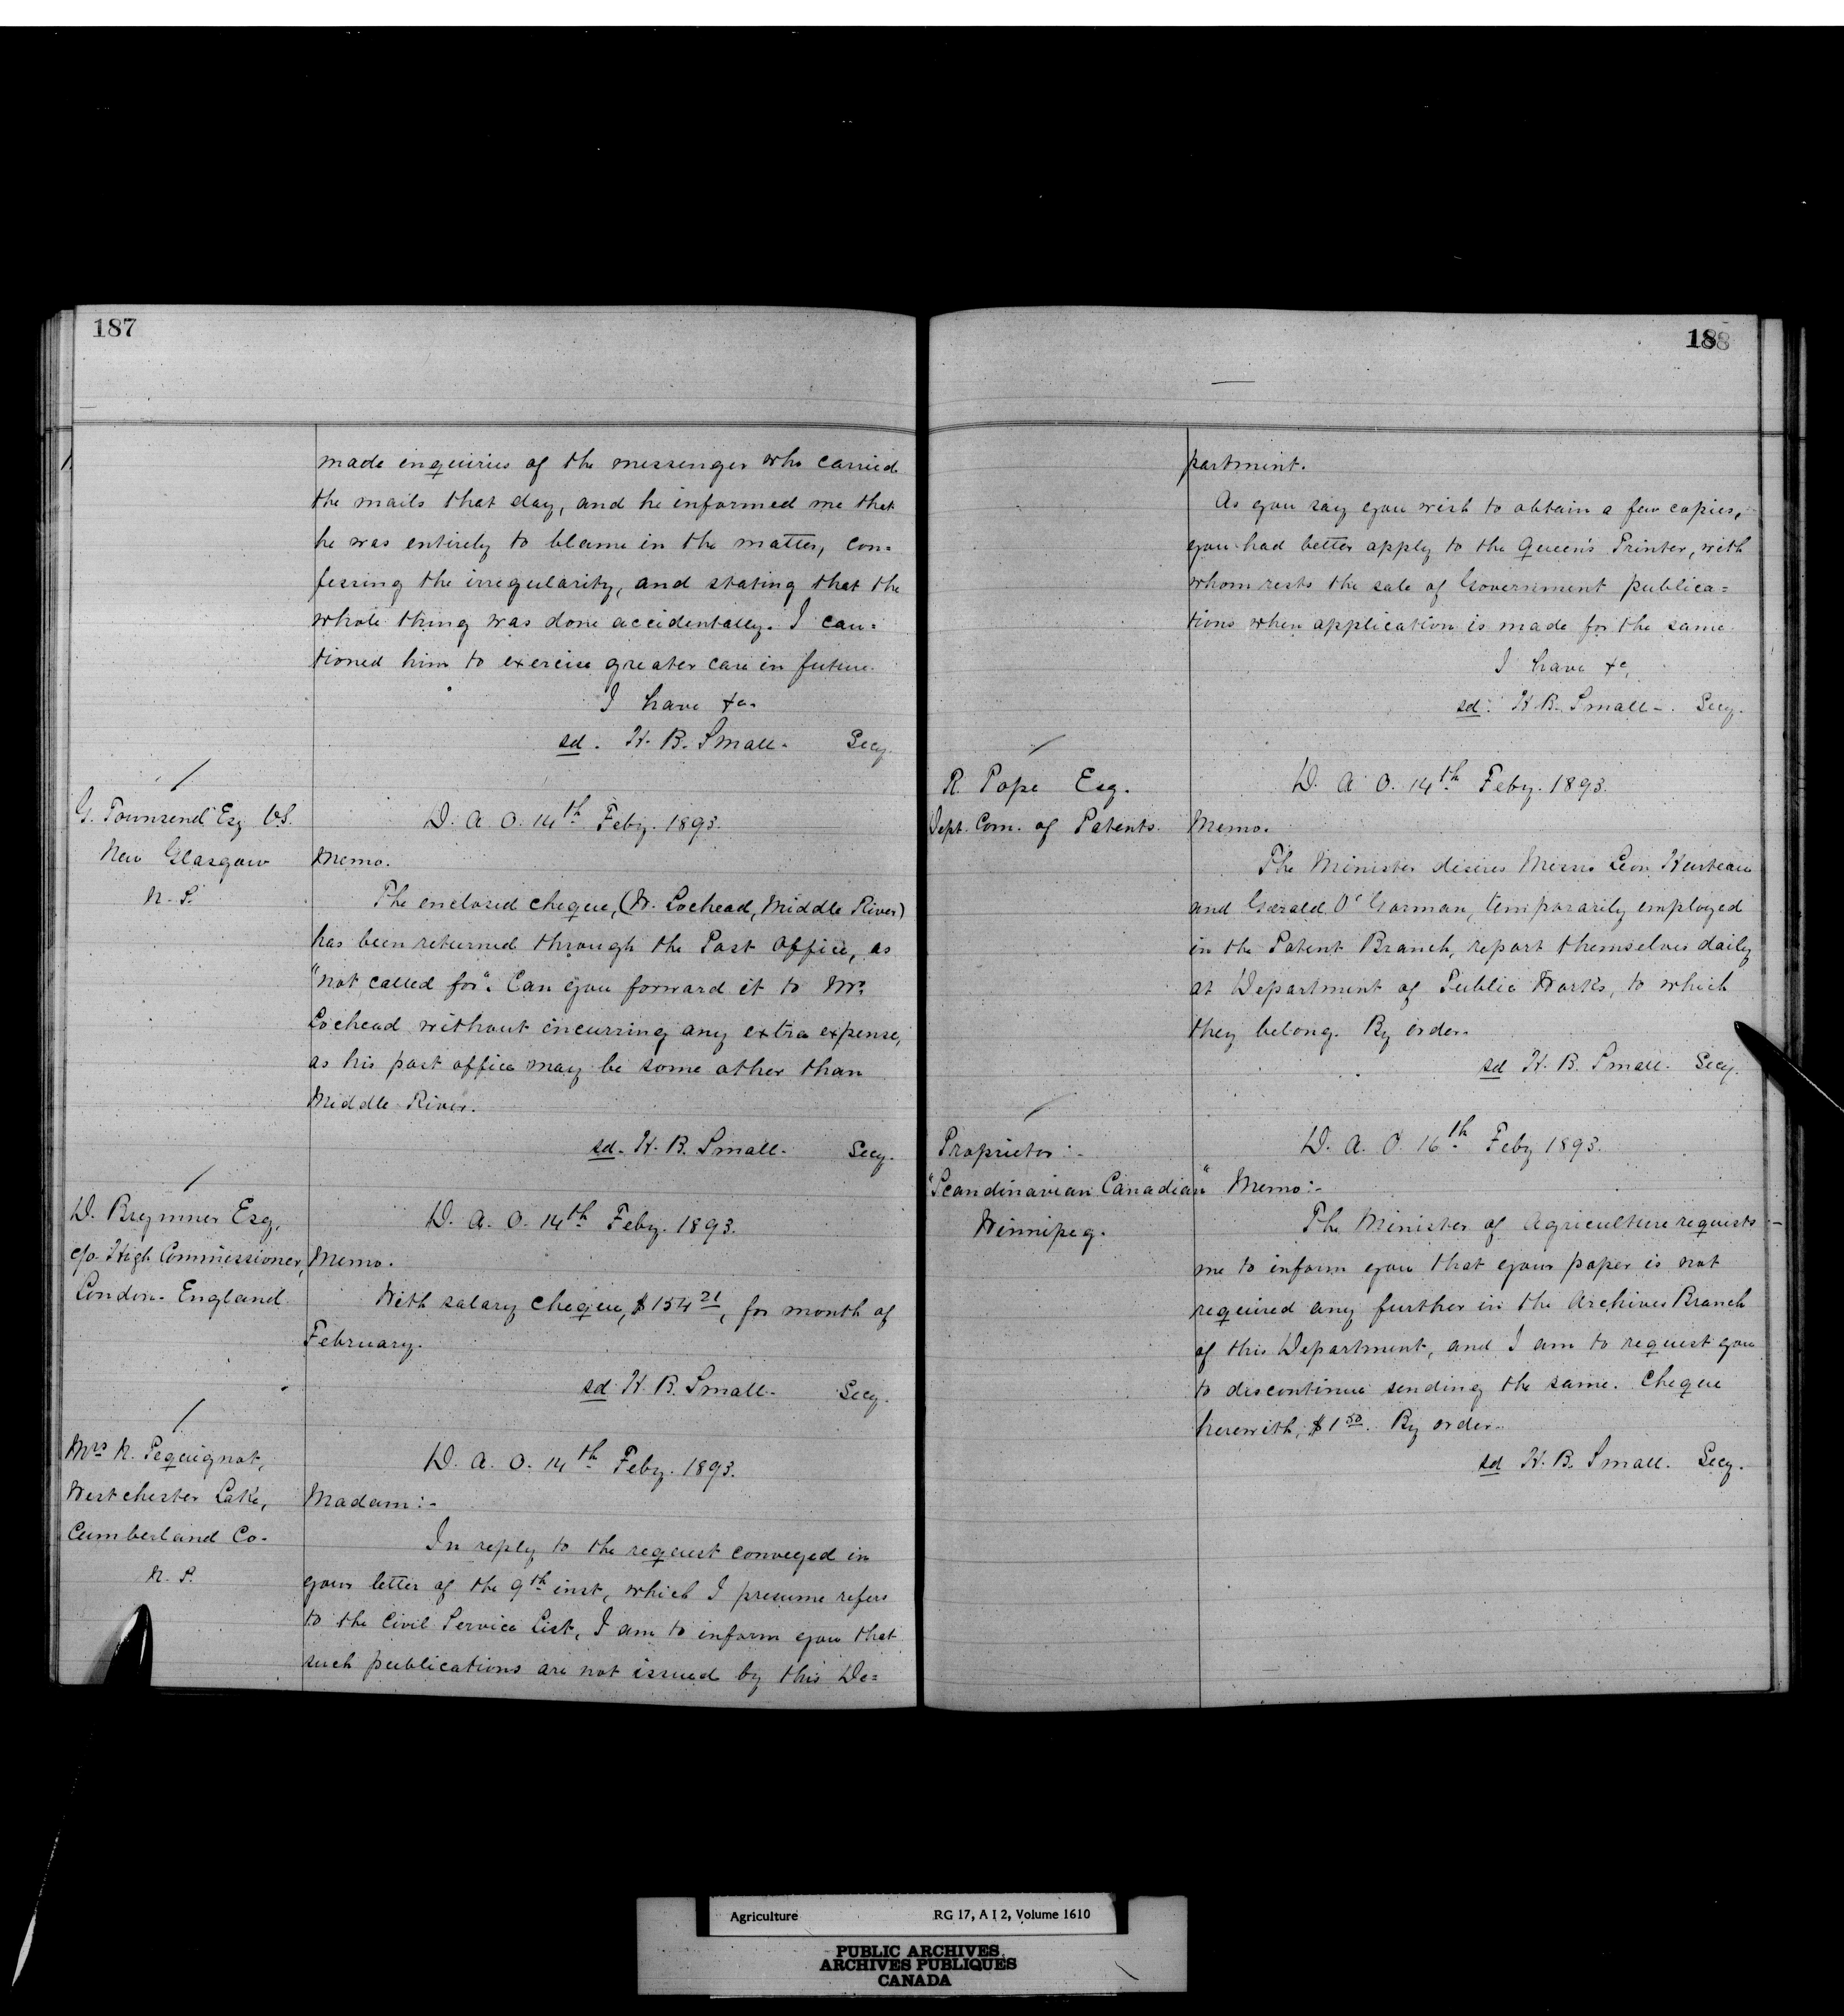 187
made enquiries of the messenger who carried
the mails that day, and he informed me that
he was entirely to blame in the matter, con=
fessing the irregularity, and stating that the
whole thing was done accidentally. I cau=
tioned him to exercise greater care in future.
I have &c.
sd. H. B. Small. Secy.
G. Townsend Esq V.S.
New Glasgow
N. S.
D. A. O. 14th Feby. 1893.
Memo.
The enclosed cheque, (W. Lochead, Middle River)
has been returned through the Post Office, as
"not called for". Can you forward it to Mr.
Lochead without incurring any extra expense,
as his post office may be some other than
Middle River.
sd. H. B. Small. Secy.
D. Brymner Esq,
c/o High Commissioner,
London. England.
D. A. O. 14th Feby. 1893.
Memo.
With salary cheque, $154 21, for month of
February.
sd H. B. Small. Secy.
Mrs N. Pequignot,
Westchester Lake,
Cumberland Co.
N. S.
D. A. O. 14th Feby. 1893.
Madam:-
In reply to the request conveyed in
your letter of the 9th inst, which I presume refers
to the Civil Service List, I am to inform you that
such publications are not issued by this De=
188
partment.
As you say you wish to obtain a few copies,
you had better apply to the Queen's Printer, with
whom rests the sale of Government publica=
tions when application is made for the same.
I have &c,
sd. H. B. Small. Secy.
R. Pope Esq.
Dept. Com. of Patents.
D. A. O. 14th Feby. 1893.
Memo.
The Minister desires Messrs Leon Hurteau
and Gerald O'Gorman, temporarily employed
in the Patent Branch, report themselves daily
at Department of Public Works, to which
they belong. By order.
sd H. B. Small. Secy.
Proprietor:-
"Scandinavian Canadian"
Winnipeg.
D. A. O. 16th Feby 1893.
Memo:-
The Minister of Agriculture requests:-
me to inform you that your paper is not
required any further in the Archives Branch
of this Department, and I am to request you
to discontinue sending the same. Cheque
herewith, $1 50. By order.
sd H. B. Small. Secy.
Agriculture RG 17, A I 2, Volume 1610
PUBLIC ARCHIVES
ARCHIVES PUBLIQUES
CANADA